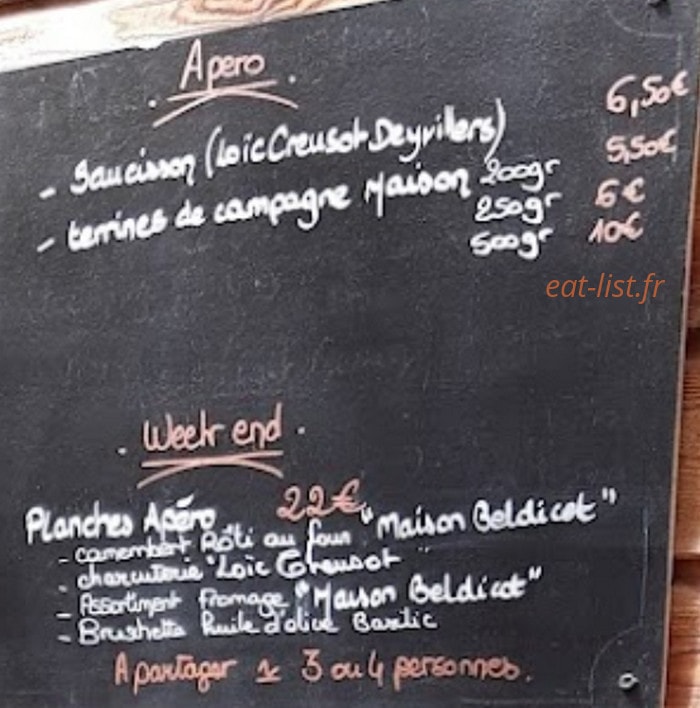 Apero
- Saucisson (Loïc Creusot Deyvillers) 6,50€
- terrines de campagne Maison 200gr 5,50€
250gr 6€
500gr 10€
eat-list.fr
Week end
Planches Apéro 22€
- Camembert Rôti au four "Maison Beldicot"
- charcuterie "Loïc Creusot"
- Assortiment fromage "Maison Beldicot"
- Brushetta huile d'olive Basilic
A partager 3 ou 4 personnes.